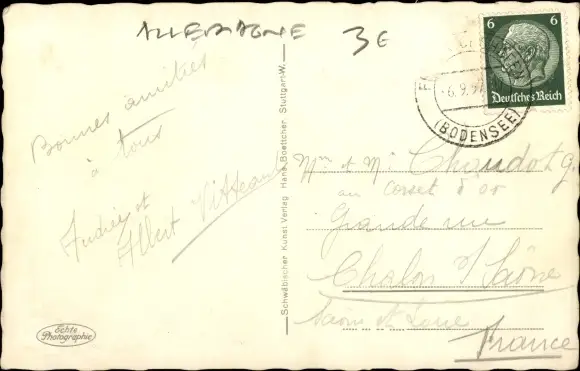 ALLEMAGNE 3€
Bonnes amitiés
à tous
Andrée et
Albert Vitteaut
Echte
Photographie
Schwäbischer Kunst Verlag Hans Boettcher Stuttgart-W.
6 6
Deutsches Reich
6.9.
(BODENSEE)
Mme et Mr Chaudot g.
au corset d'or
Grande rue
Chalon s/ Saône
Saone et Loire
France